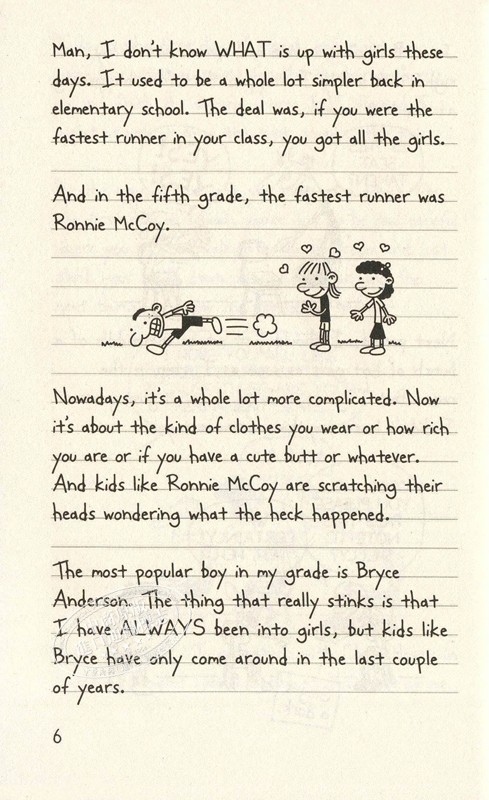 Man, I don't know WHAT is up with girls these
days. It used to be a whole lot simpler back in
elementary school. The deal was, if you were the
fastest runner in your class, you got all the girls.
And in the fifth grade, the fastest runner was
Ronnie McCoy.
Nowadays, it's a whole lot more complicated. Now
it's about the kind of clothes you wear or how rich
you are or if you have a cute butt or whatever.
And kids like Ronnie McCoy are scratching their
heads wondering what the heck happened.
The most popular boy in my grade is Bryce
Anderson. The thing that really stinks is that
I have ALWAYS been into girls, but kids like
Bryce have only come around in the last couple
of years.
6